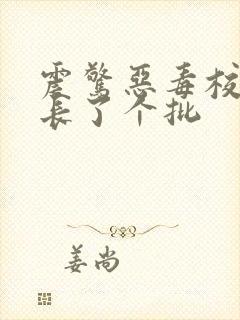 震惊恶毒校
长了个批
姜尚